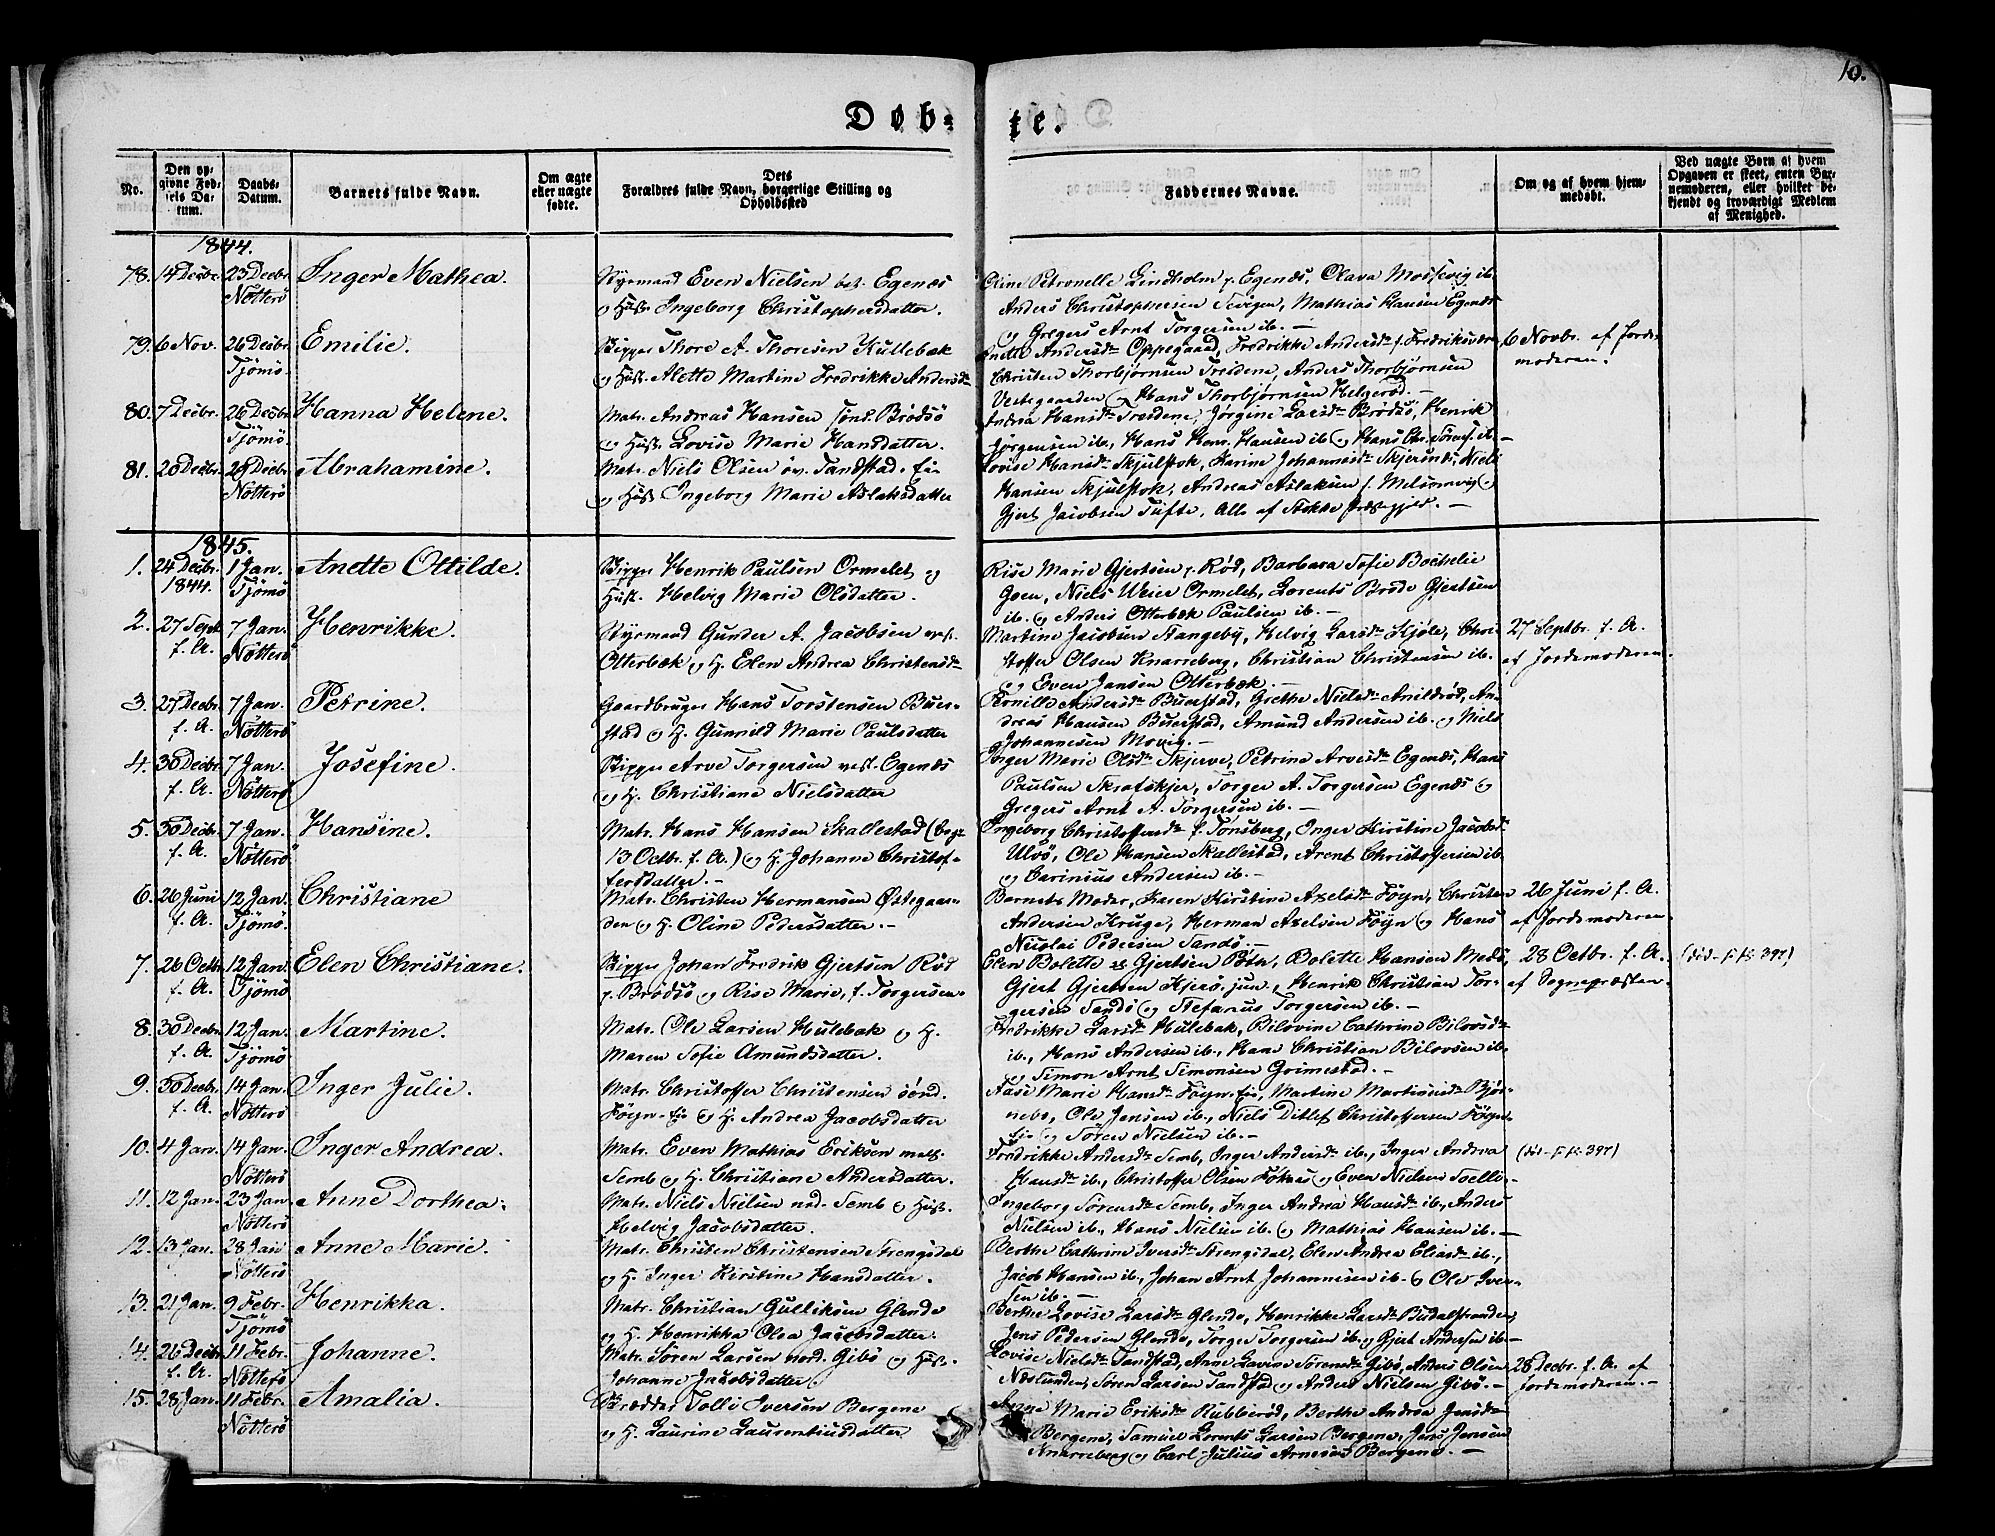 10.
Døb-te.
No.
Den op-
givne Fød-
sels Da-
tum.
Daabs-
Datum.
Barnets fulde Navn.
Om ægte
eller uægte
fødte.
Dets
Forældres fulde Navn, borgerlige Stilling og
Opholdssted
Faddernes Navne.
Om og af hvem hjem-
medøbt.
Ved uægte Børn af hvem
Opgaven er skeet, enten Bar-
nemoderen, eller hvilket be-
kjendt og troværdigt Medlem
af Menighed.
1844.
78. 14 Decbr. 23 Decbr. Inger Mathea. Styrmand Even Nielsen Egenæs Oline Petronelle Lindholm Egenæs, Olava Mossevig ib.
Nötterö og Hust. Ingeborg Christophersdatter. Anders Christophersen Tevigen, Mathias Hansen Egenæs
og Gregers Arnt Torgersen ib. —
79. 6 Nov. 26 Decbr. Emilie. Skipper Thore A. Thoresen Kullebæk Anette Andersdr. Oppegaad, Fredrikke Andersdr. f. Fredriksværn 6 Novbr. af Jorde-
Tjömö. og Hust. Alette Martine Fredrikke Andersdr. Christen Thorbjørnsen Treidene, Anders Thorbjørnsen moderen.
Vestgaarden og Hans Thorbjørnsen Helgerød.
80. 7 Decbr. 26 Decbr. Hanna Helene. Matr. Andreas Hansen sönd. Brødsö Andrea Hansdr. Treidene, Jørgine Larsdr. Brødsö, Henrik
Tjömö. og Hust. Lovise Marie Hansdatter. Jørgensen ib., Hans Henr. Hansen ib. og Hans Chr. Sörens. ib. —
81. 20 Decbr. 29 Decbr. Abrahamine. Matr. Niels Olsen öv. Tandstad. Lovise Hansdr. Skjulstok, Karine Johannesdr. Skjersnes, Niels
Nötterö og Hust. Ingeborg Marie Aslaksdatter Hansen Skjulstok, Andreas Aslaksen f. Melsomvig og
Gjert Jacobsen Tufte, Alle af Stokke Præstegjeld. —
1845.
1. 24 Decbr. 1 Jan. Anette Ottilde. Skipper Henrik Paulsen Ormelet og Rise Marie Gjertsen Rød, Barbara Sofie Bochelie
1844. Tjömö Hust. Helvig Marie Olsdatter. Goen, Niels Weier Ormelet, Lorents Brøde Gjertsen
ib. og Anders Otterbæk Paulsen ib. —
2. 27 Sept 7 Jan. Henrikke. Styrmand Gunder A. Jacobsen vest. Martine Jacobsen Stangeby, Helvig Larsdr. Kjøle, Chri- 27 Septbr. f. A.
f. A. Nötterö Otterbæk og H. Elen Andrea Christensdr. stoffer Olsen Knarreberg, Christian Christensen ib. af Jordemoderen.
og Even Jansen Otterbæk. —
3. 27 Decbr. 7 Jan. Petrine. Gaardbruger Hans Torstensen Buer- Pernille Andersdr. Buerstad, Grethe Nielsdr. Anildrød, An-
f. A. Nötterö stad og H. Gunnild Marie Paulsdatter dreas Hansen Buerstad, Amund Andersen ib. og Niels
Johannesen Movig. —
4. 30 Decbr. 7 Jan. Josefine. Skipper Arve Torgersen vest. Egenæs Inger Marie Olsdr. Skjerve, Petrine Arvesdr. Egenæs, Hans
f. A. Nötterö og H. Christiane Nielsdatter Paulsen Skrafskjer, Torger A. Torgersen Egenæs og
Gregers Arnt A. Torgersen ib. —
5. 30 Decbr. 7 Jan. Hansine. Matr. Hans Hansen Skallestad (begr. Ingeborg Christoffersdr. f. Tønsberg, Inger Kirstine Jacobsdr.
f. A. Nötterö 13 Octbr. f. A.) og H. Johanne Christof- Ulvö, Ole Hansen Skallestad, Arent Christoffersen ib.
fersdatter. — og Carinius Andersen ib. —
6. 26 Juni 12 Jan. Christiane Matr. Christen Hermansen Østegaar- Barnets Moder, Karen Kirstine Axelsdr. Föyn, Christen 26 Juni f. A.
f. A. Tjömö. den og H. Oline Pedersdatter. — Andersen Kruge, Herman Axelsen Föyn og Hans af Jordemoderen.
Nicolai Pedersen Sandö. —
7. 26 Octbr. 12 Jan. Elen Christiane. Skipper Johan Fredrik Gjertsen Rød Elen Bolette Gjertsen Röth, Bolette Hansen Medö, 28 Octbr. f. A. (död - F. K. 397)
f. A. Tjömö Brödsö og Rise Marie, f. Torgersen. Gjert Gjertsen Kjerö. jun., Henrik Christian Tor- af Sognepræsten.
gersen Sandö og Stefanus Torgersen ib. —
8. 30 Decbr. 12 Jan. Martine. Matr. Ole Larsen Hulebak og H. Fredrikke Larsdr. Hulebak, Bilovine Cathrine Bilovsdr.
f. A. Tjömö Maren Sofie Amundsdatter. ib., Hans Andersen ib., Hans Christian Bilovsen ib.
og Simon Arnt Simonsen Grimestad. —
9. 30 Decbr. 14 Jan. Inger Julie. Matr. Christoffer Christensen sönd. Aase Marie Hansdr. Föyn-, Martine Martinusdr. Bjør-
f. A. Nötterö Föyn- og H. Andrea Jacobsdatter nebo, Ole Jensen ib., Niels Ditlef Christoffersen Föyn-
og Sören Nielsen ib. —
10. 4 Jan. 14 Jan. Inger Andrea. Matr. Even Mathias Eriksen mell. Fredrikke Andersdr. Semb, Inger Andersdr. ib., Inger Andrea (död - F. K. 397)
Nötterö Semb og H. Christiane Andersdatter. Hansdr. ib., Christoffer Olsen Foknes og Even Nielsen Solli. —
11. 12 Jan. 23 Jan. Anne Dorthea. Matr. Niels Nielsen ned. Semb og Hust. Ingeborg Sörensdr. Semb, Inger Andrea Hansdr. ib., Anders
Nötterö Helvig Jacobsdatter. Nielsen ib., Hans Nielsen ib. og Mathias Hansen ib. —
12. 13 Jan. 28 Jan Anne Marie. Matr. Christen Christensen Strengsdal Berthe Cathrine Iversdr. Strengsdal, Elen Andrea Eliasdr. ib.,
Nötterö og H. Inger Kirstine Hansdatter. Jacob Hansen ib., Johan Arnt Johannesen ib. og Ole Iver-
sen ib. —
13. 21 Jan. 9 Febr. Henrikka. Matr. Christian Gulliksen Glende Berthe Lovise Larsdr. Glende, Henrikke Larsdr. Budalstranden,
Tjömö og H. Henrikka Olea Jacobsdatter. Jens Pedersen Glende, Torger Torgersen ib. og Gjert Andersen ib. —
14. 26 Decbr. 11 Febr. Johanne. Matr. Sören Larsen nord. Gibö og Hust. Lovise Nielsdr. Tandstad, Anne Lavine Sörensdr. Gibö, Anders Olsen 28 Decbr. f. A. af
f. A. Nötterö Johanne Jacobsdatter. Næslunden, Sören Larsen Tandstad og Anders Nielsen Gibö. — Jordemoderen. —
15. 28 Jan. 11 Febr. Amalia. Skrædder Tolle Iversen Bergene Anne Marie Eriksdr. Rubberød, Berthe Andrea Jensdr.
Nötterö og H. Laurine Laurentiusdatter Bergene, Samuel Lorents Larsen Bergene, Jens Jensen
Knarreberg og Carl Julius Arnesen Bergene. —